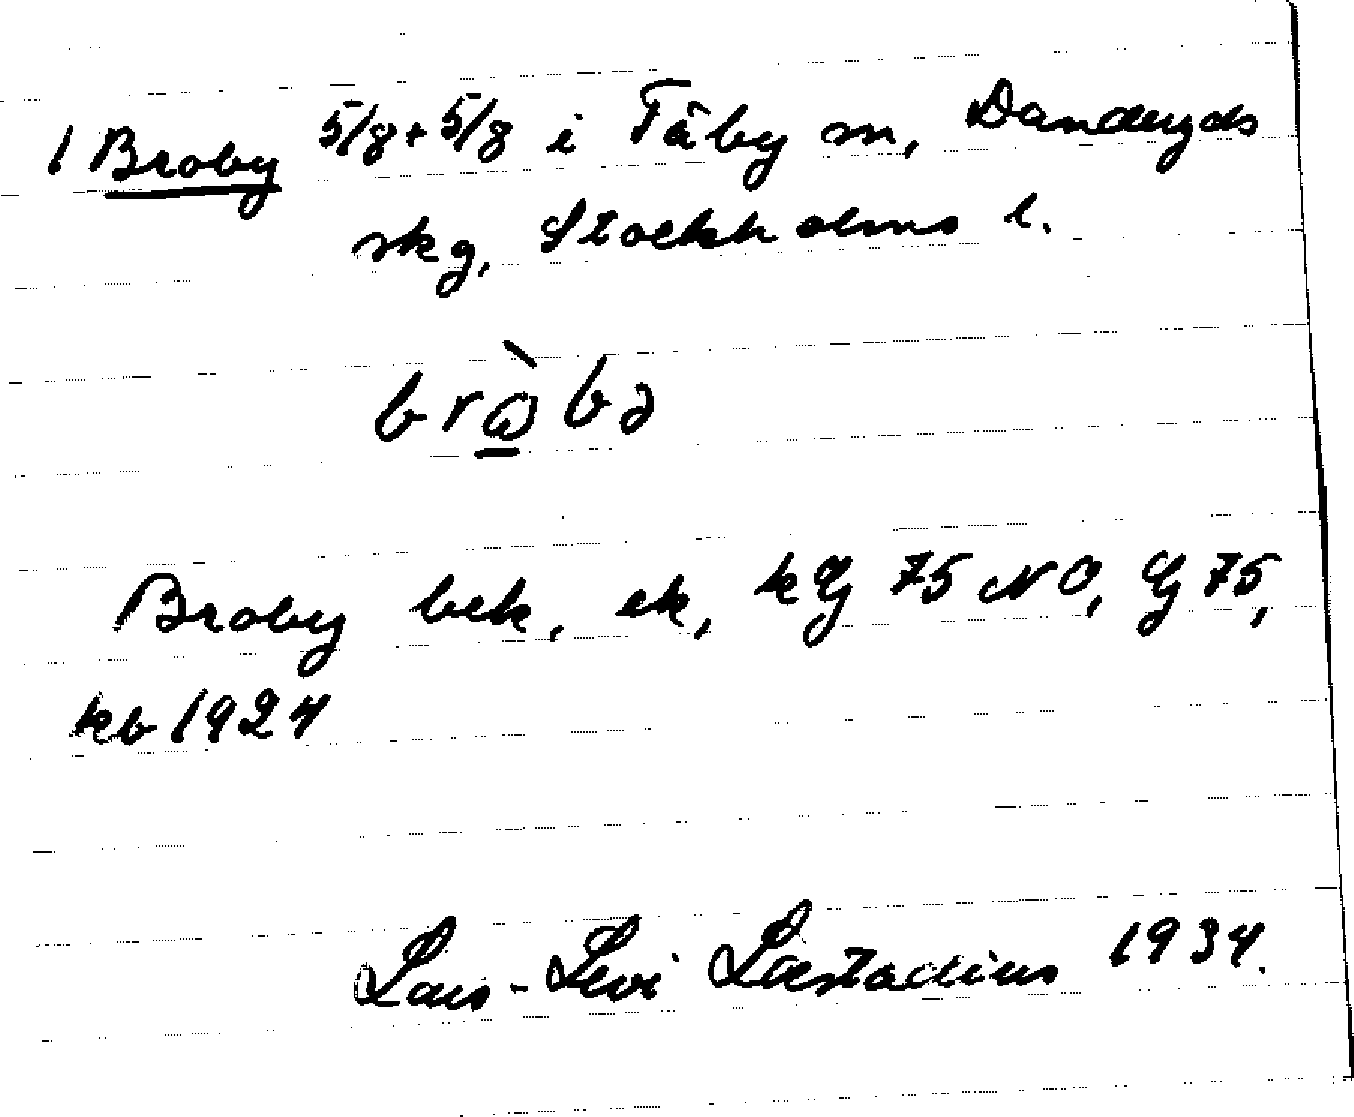 1 Broby 5/8 + 5/8 i Täby sn, Danderyds
skg, Stockholms l.
Broby bek, ek, kGj 75 NO, Gj 75,
kb 1924
Lars-Levi Læstadius 1934.